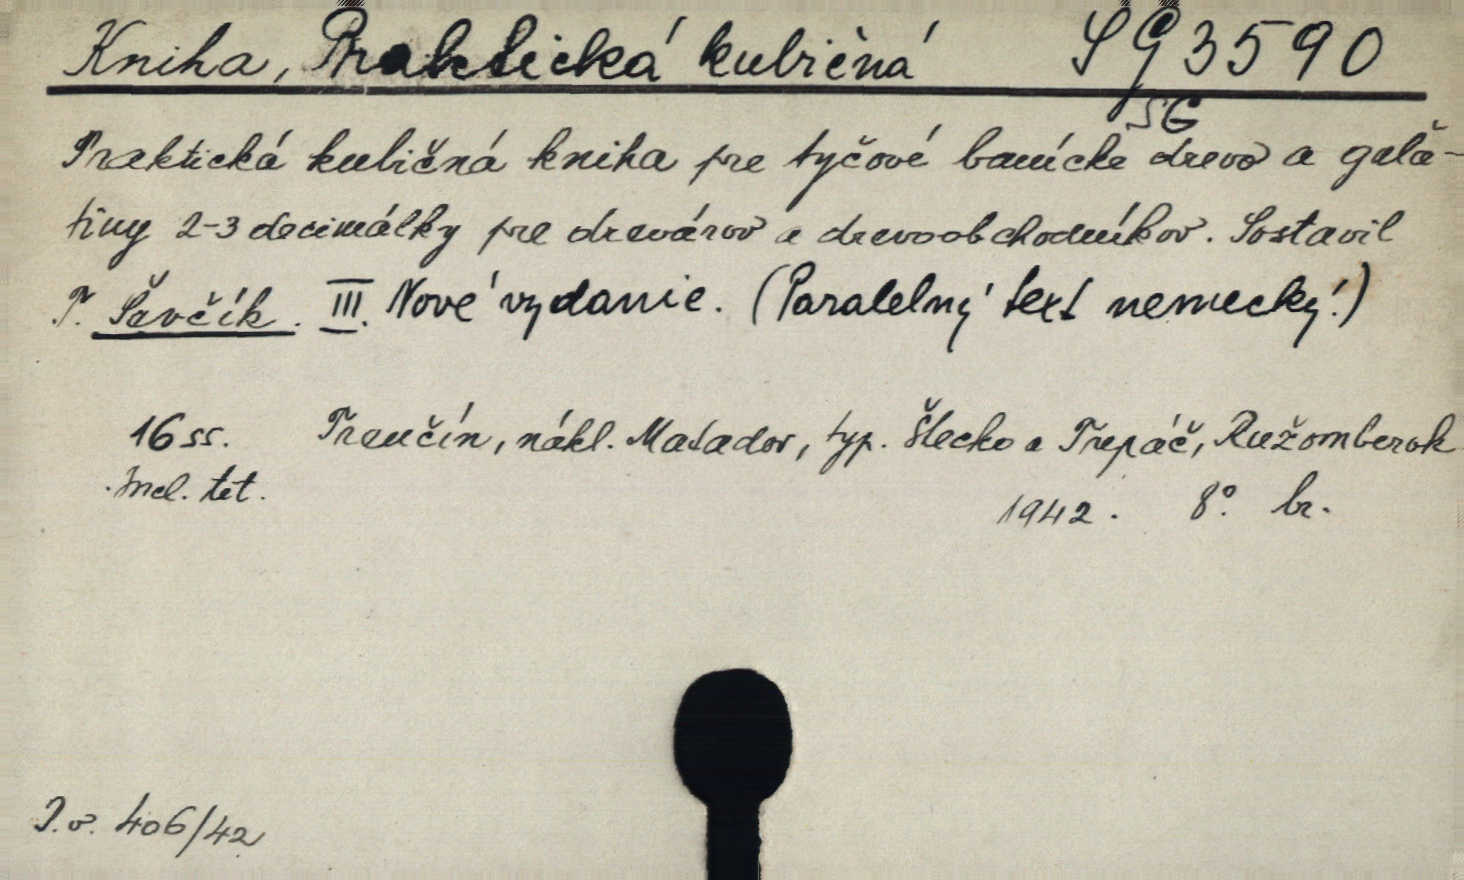 Kniha, Praktická kubičná SG 3590
SG
Praktická kubičná kniha pre tyčové banícke drevo a gula-
tiny 2-3 decimálky pre drevárov a drevoobchodníkov. Sostavil
F. Ševčík. III. Nové vydanie. (Paralelný text nemecký!)
16 ss. Trenčín, nákl. Matador, typ. Šlecko a Třepáč, Ružomberok
Incl. tit. 1942. 8°. br.
P. v. 406/42